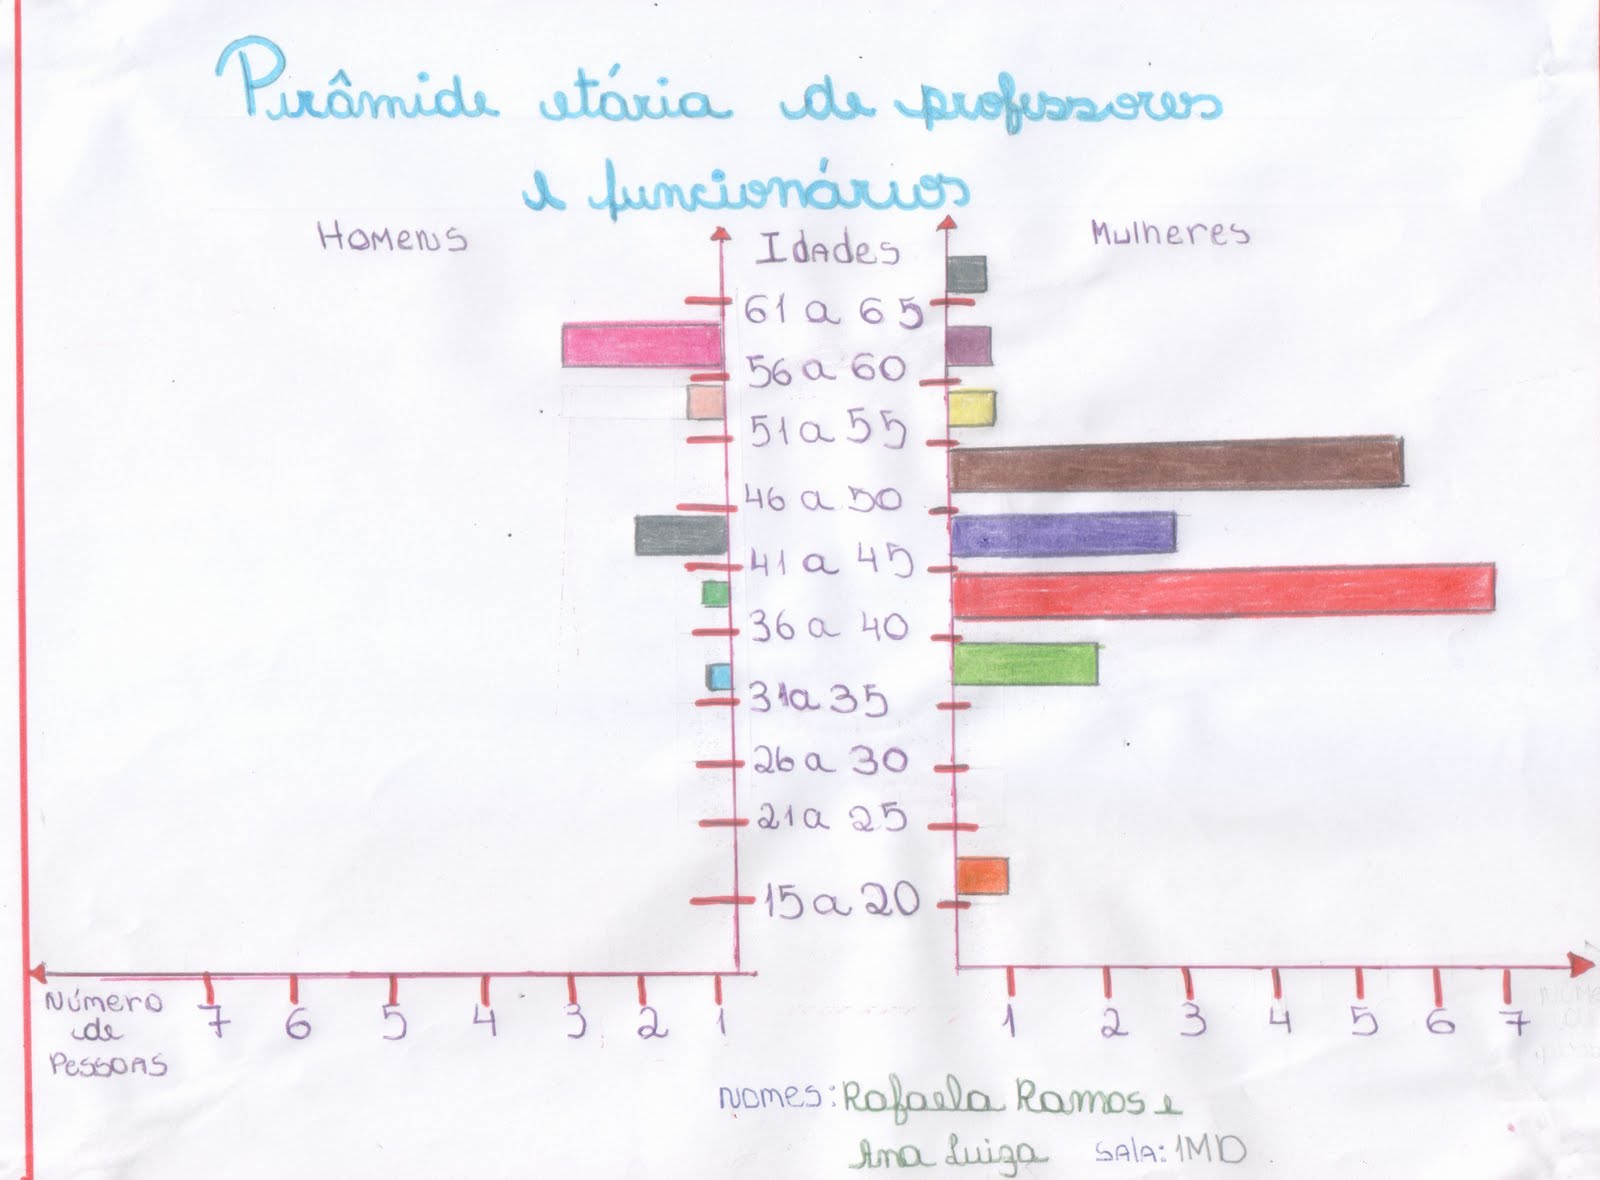 Pirâmide etária de professores
e funcionários
Homens
Idades
Mulheres
61 a 65
56 a 60
51 a 55
46 a 50
41 a 45
36 a 40
31 a 35
26 a 30
21 a 25
15 a 20
Número
de
Pessoas
7 6 5 4 3 2 1
1 2 3 4 5 6 7
Nomes: Rafaela Ramos e
Ana Luiza Sala: 1MD